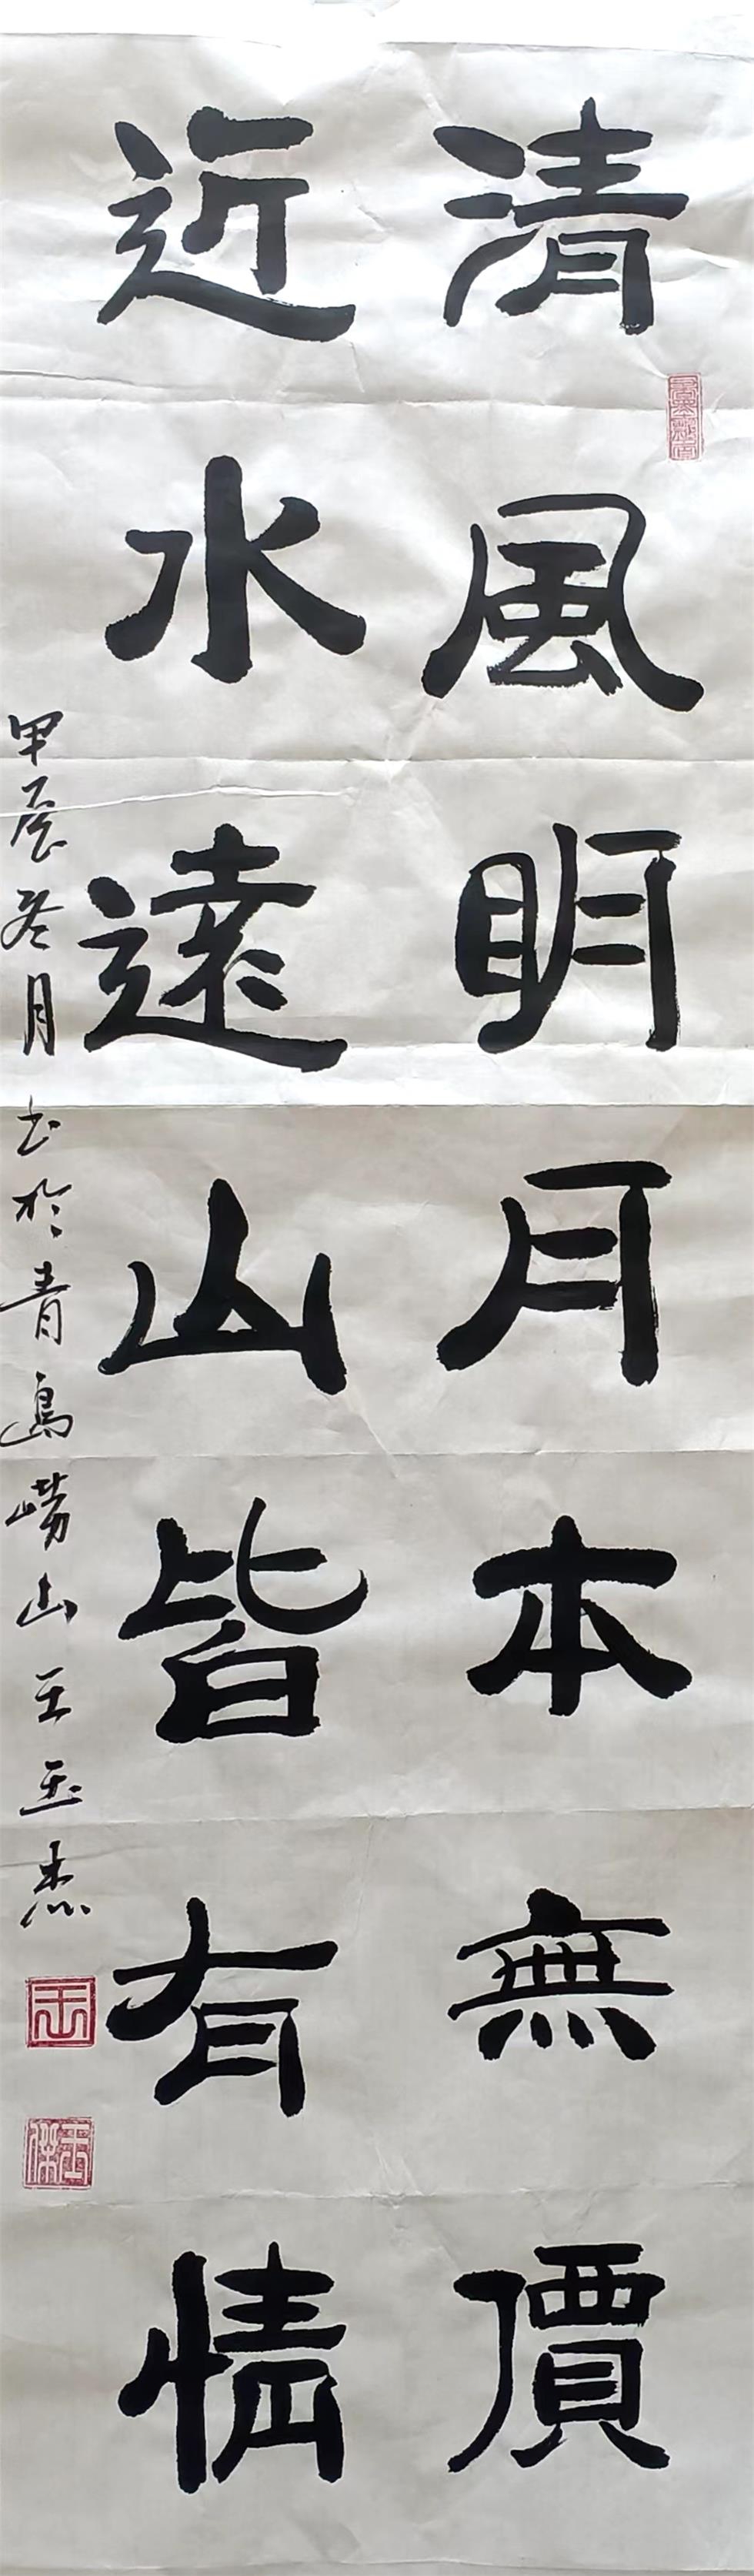 清風明月本無價
近水遠山皆有情
甲辰冬月书於青島嶗山王玉杰
王
玉傑